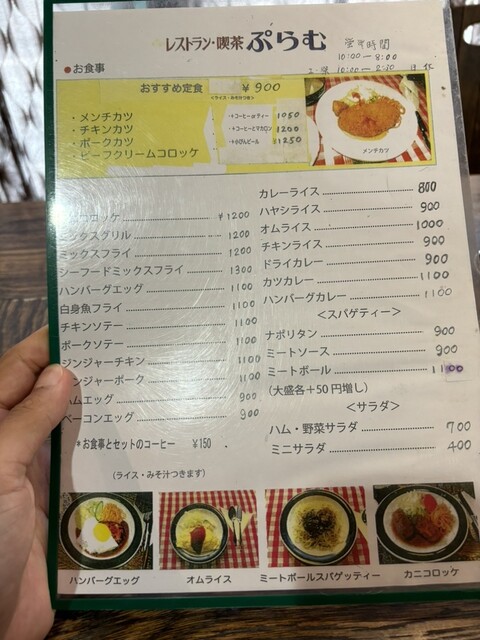 レストラン・喫茶 ぷらむ
営業時間
10:00-8:00
10:00-2:30
●お食事
おすすめ定食 ¥900
<ライス・みそ汁つき>
・メンチカツ
・チキンカツ
・ポークカツ
・ビーフクリームコロッケ
・+コーヒーorティー 1050
・+コーヒーとマカロン 1200
・+小びんビール ¥1250
メンチカツ
コロッケ ¥1200
クスグリル 1200
ミックスフライ 1200
シーフードミックスフライ 1300
ハンバーグエッグ 1100
白身魚フライ 1100
チキンソテー 1100
ポークソテー 1100
ジンジャーチキン 1100
ンジャーポーク 1100
ハムエッグ 900
ベーコンエッグ 900
*お食事とセットのコーヒー ¥150
(ライス・みそ汁つきます)
カレーライス 800
ハヤシライス 900
オムライス 1000
チキンライス 900
ドライカレー 900
カツカレー 1100
ハンバーグカレー 1100
<スパゲティー>
ナポリタン 900
ミートソース 900
ミートボール 1100
(大盛各+50円増し)
<サラダ>
ハム・野菜サラダ 700
ミニサラダ 400
ハンバーグエッグ
オムライス
ミートボールスパゲッティー
カニコロッケ